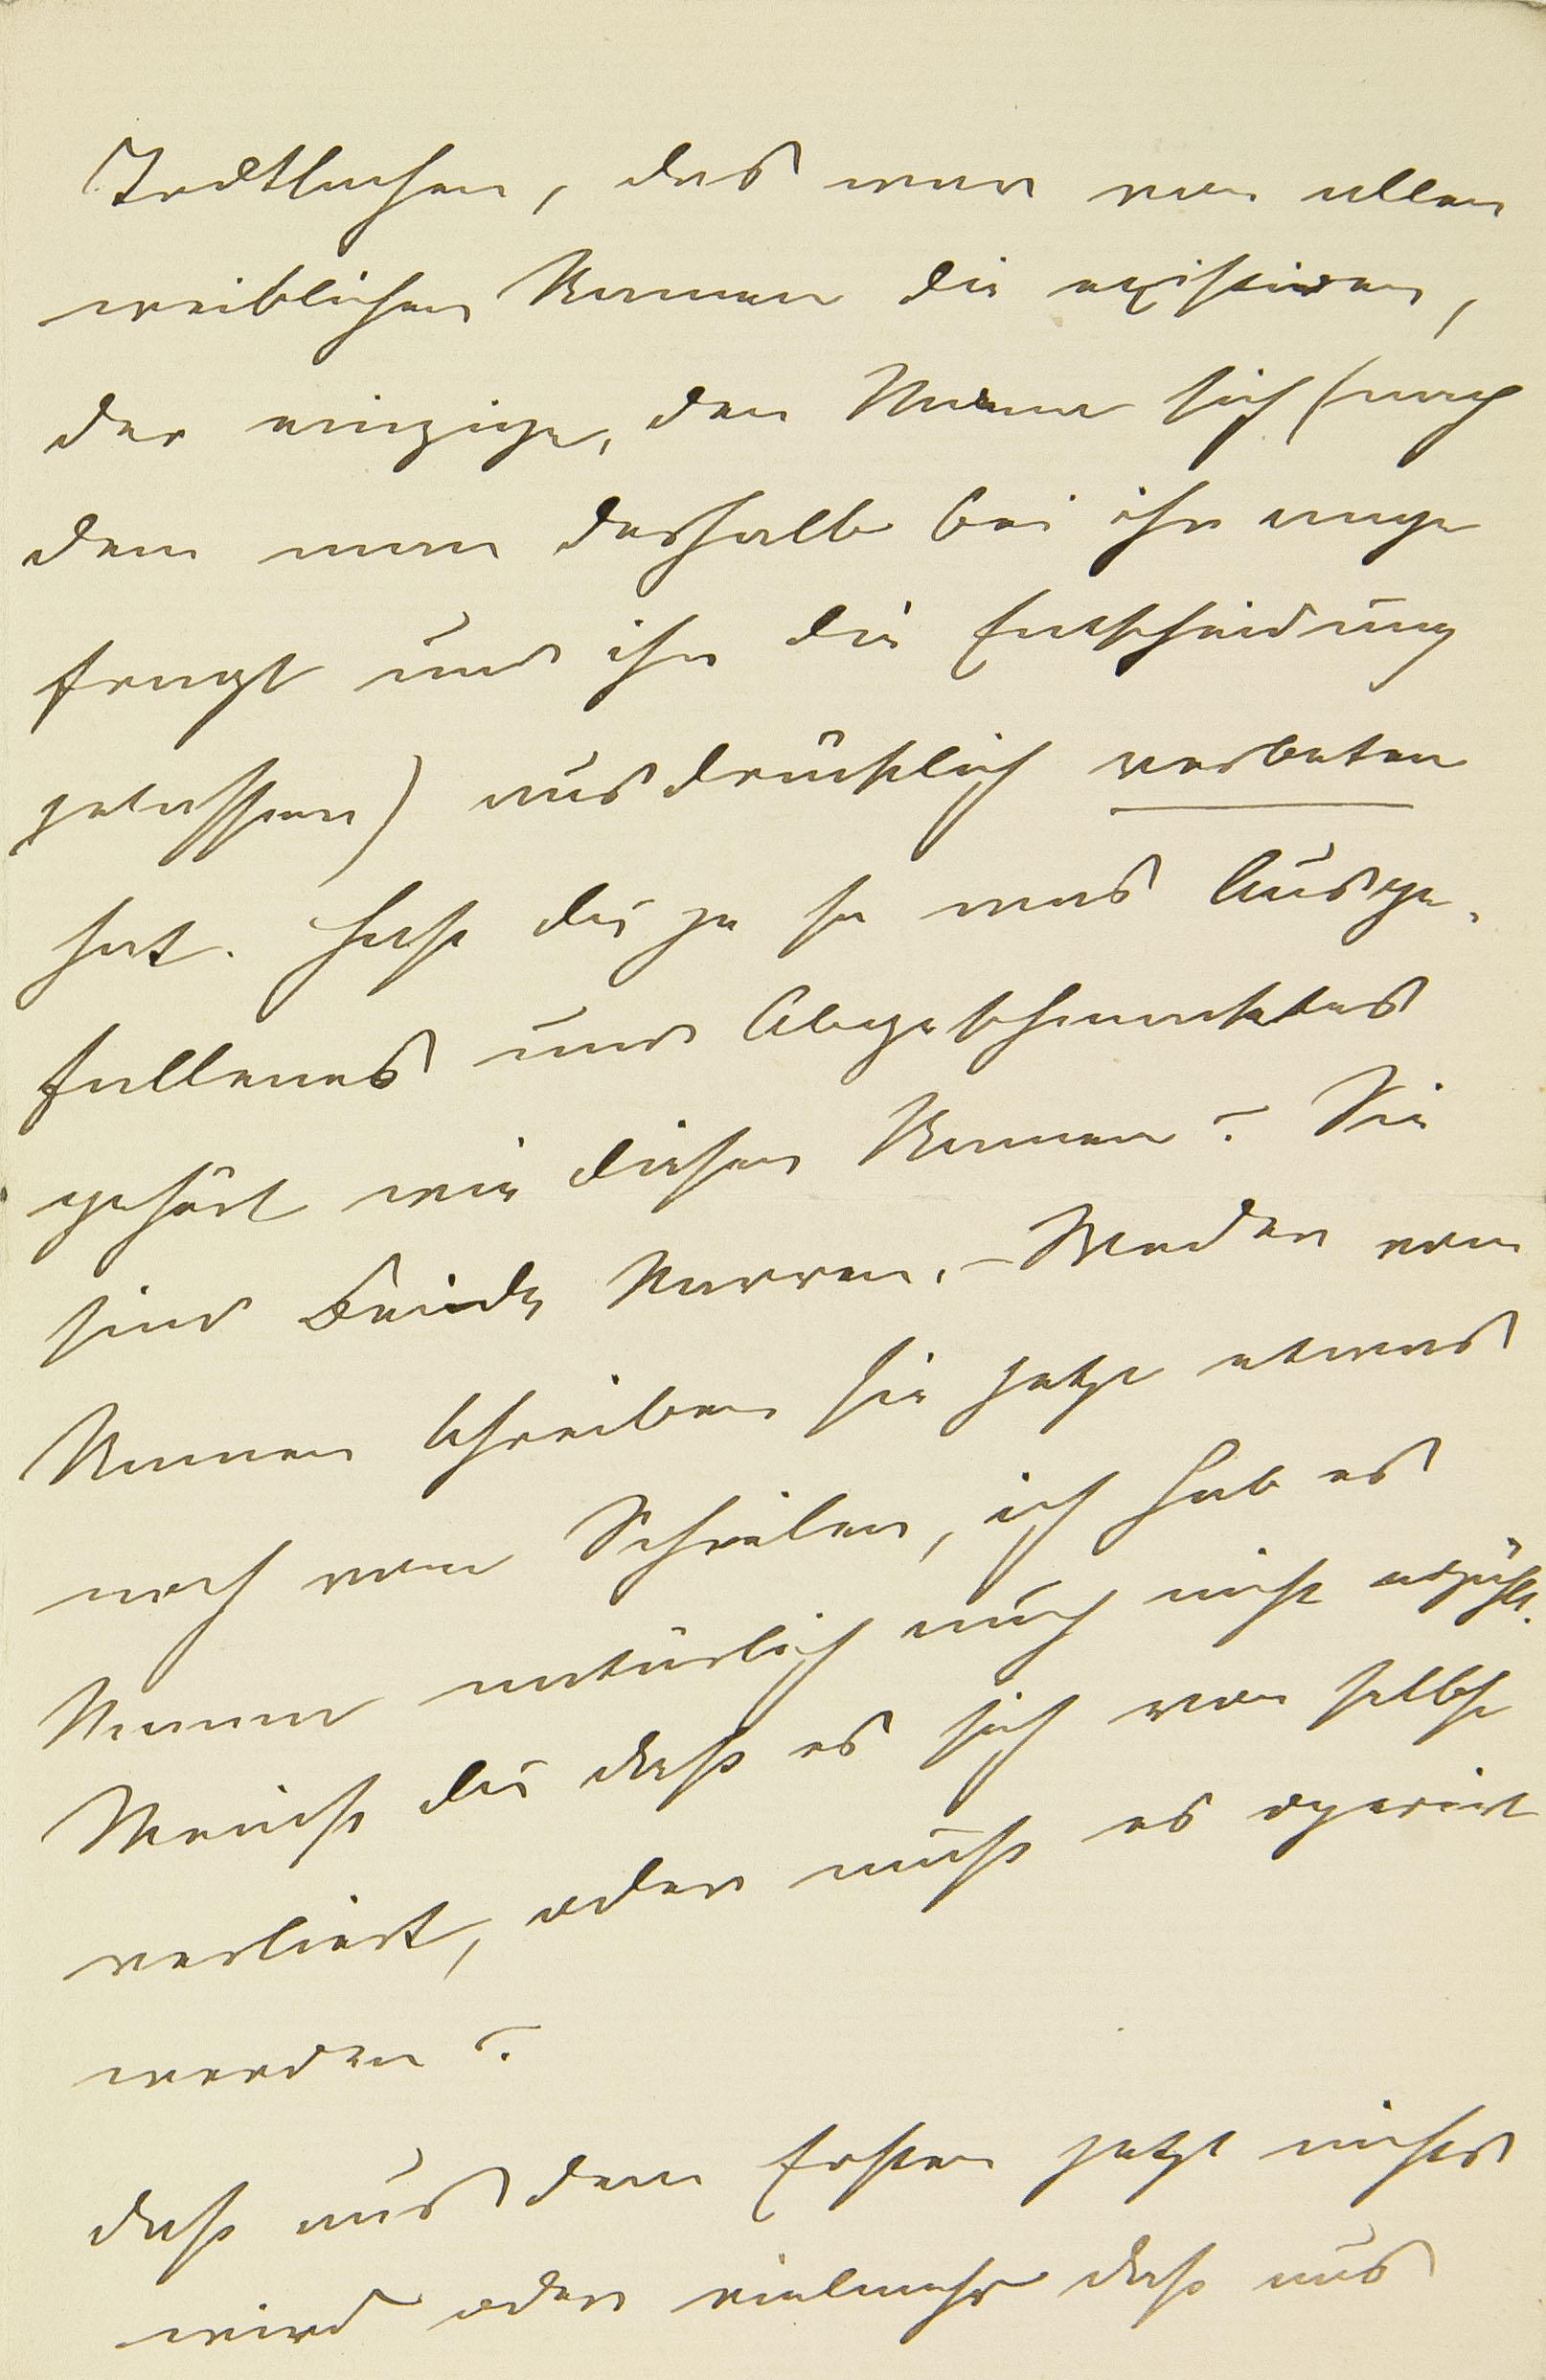 Todtlachen, das war von allen
weiblichen Namen die existiren,
der einzige, den Mama sich (nach
dem man deshalb bei ihr ange
fragt und ihr die Entscheidung
gelassen) ausdrücklich verbeten
hat. Hast du je so was Ausge-
fallenes und Abgeschmacktes
gehört wie diesen Namen? Sie
sind Beide Narren. – Weder vom
Namen schreiben sie jetzt etwas
noch vom Schielen, ich hab es
Mama natürlich auch nicht erzählt.
Meinst du daß es sich von selbst
verliert, oder muß es operirt
werden?
daß aus dem Ersten jetzt nichts
wird oder vielmehr daß aus